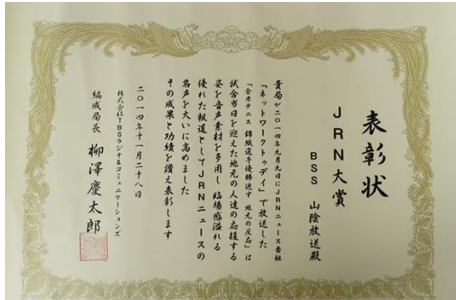 表彰状
JRN大賞
BSS 山陰放送殿
貴局が二〇一四年九月九日にJRNニュース番組
「ネットワークトゥデイ」で放送した
「全米テニス 錦織選手優勝逃す 地元の反応」は
試合当日を迎えた地元の人達の応援する
姿を音声素材を多用し 臨場感溢れる
優れた報道としてJRNニュースの
名声を大いに高めました
その成果と功績を讃え表彰します
二〇一四年十一月二十八日
株式会社TBSラジオ&コミュニケーションズ
編成局長 柳澤慶太郎